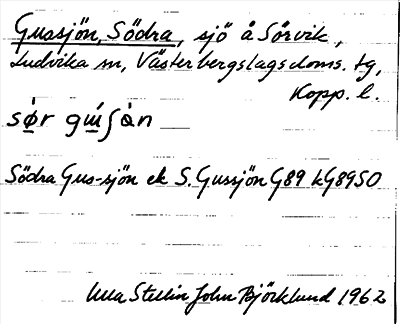 Gussjön, Södra, sjö å Sörvik,
Ludvika sn, Västerbergslagsdoms. tg,
Kopp. l.
Södra Gus-sjön ek S. Gussjön G89 kG89SO
Ulla Stellin John Björklund 1962